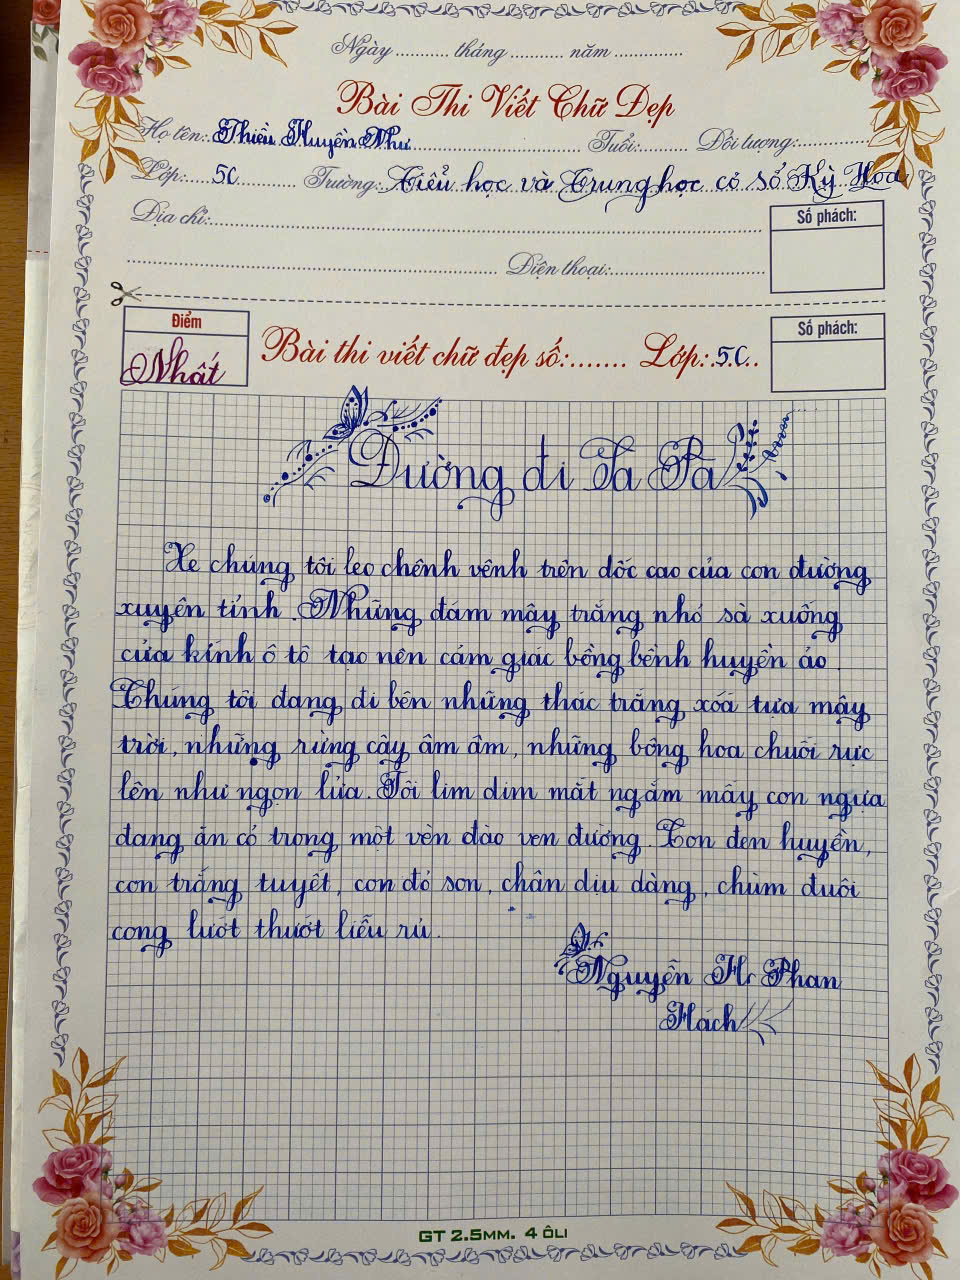 Ngày .......... tháng .......... năm ..........
Bài Thi Viết Chữ Đẹp
Họ tên: Thiều Huyền Như Tuổi: Đối tượng:
Lớp: 5C Trường: Tiểu học và Trung học cơ sở Kỳ Hoa
Địa chỉ: Số phách:
Điện thoại:
Điểm
Nhất
Bài thi viết chữ đẹp số:....... Lớp: 5C..
Số phách:
Đường đi Sa Pa
Xe chúng tôi leo chênh vênh trên dốc cao của con đường
xuyên tỉnh. Những đám mây trắng nhỏ sà xuống
cửa kính ô tô tạo nên cảm giác bồng bềnh huyền ảo.
Chúng tôi đang đi bên những thác trắng xoá tựa mây
trời, những rừng cây âm âm, những bông hoa chuối rực
lên như ngọn lửa. Tôi lim dim mắt ngắm mấy con ngựa
đang ăn cỏ trong một vờn đào ven đường. Con đen huyền,
con trắng tuyết, con đỏ son, chân dịu dàng, chùm đuôi
cong lướt thướt liễu rủ.
Nguyễn Phan
Hách
GT 2.5MM. 4 ÔLI